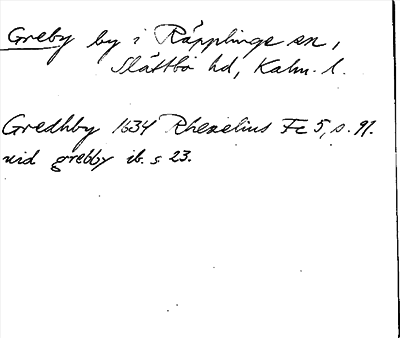 Greby by i Räpplinge sn,
Slättbo hd, Kalm. l.
Gredhby 1634 Rhezelius Fc 5, s. 91.
vid grebby ib. s 23.